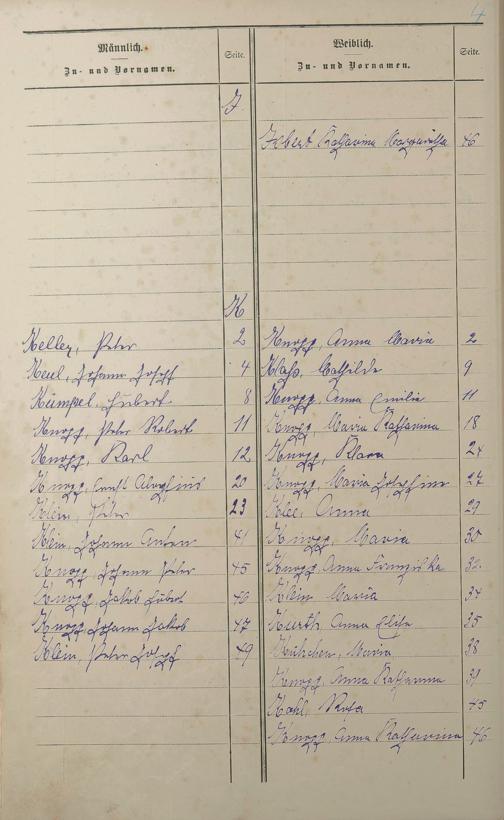 4
Männlich. Seite. Weiblich. Seite.
Zu- und Vornamen. Zu- und Vornamen.
J.
Katharina Margaretha 46
K
Keller, Peter 2 Knopp, Anna Maria 2
Keul, Johann Joseph 4 Mathilde 9
Kümpel, Hubert 8 Knopp, Anna Emilie 11
Knopp, Peter Robert 11 Knopp, Maria Katharina 18
Knopp, Karl 12 Knopp, Klara 24
Knopp, Ernst Aloysius 20 Knopp, Maria Josephine 27
Klein, Peter 23 Klee, Anna 29
Klein, Johann Anton 41 Knopp, Maria 30
Knopp, Johann Peter 45 Knopp, Anna Franziska 32
Knopp, Jakob Hubert 46 Klein Maria 34
Knopp, Johann Jakob 47 Kurth, Anna Elisa 35
Klein, Peter Joseph 49 Maria 38
Knopp, Anna Katharina 39
Kohl, Rosa 45
Knopp, Anna Katharina 46